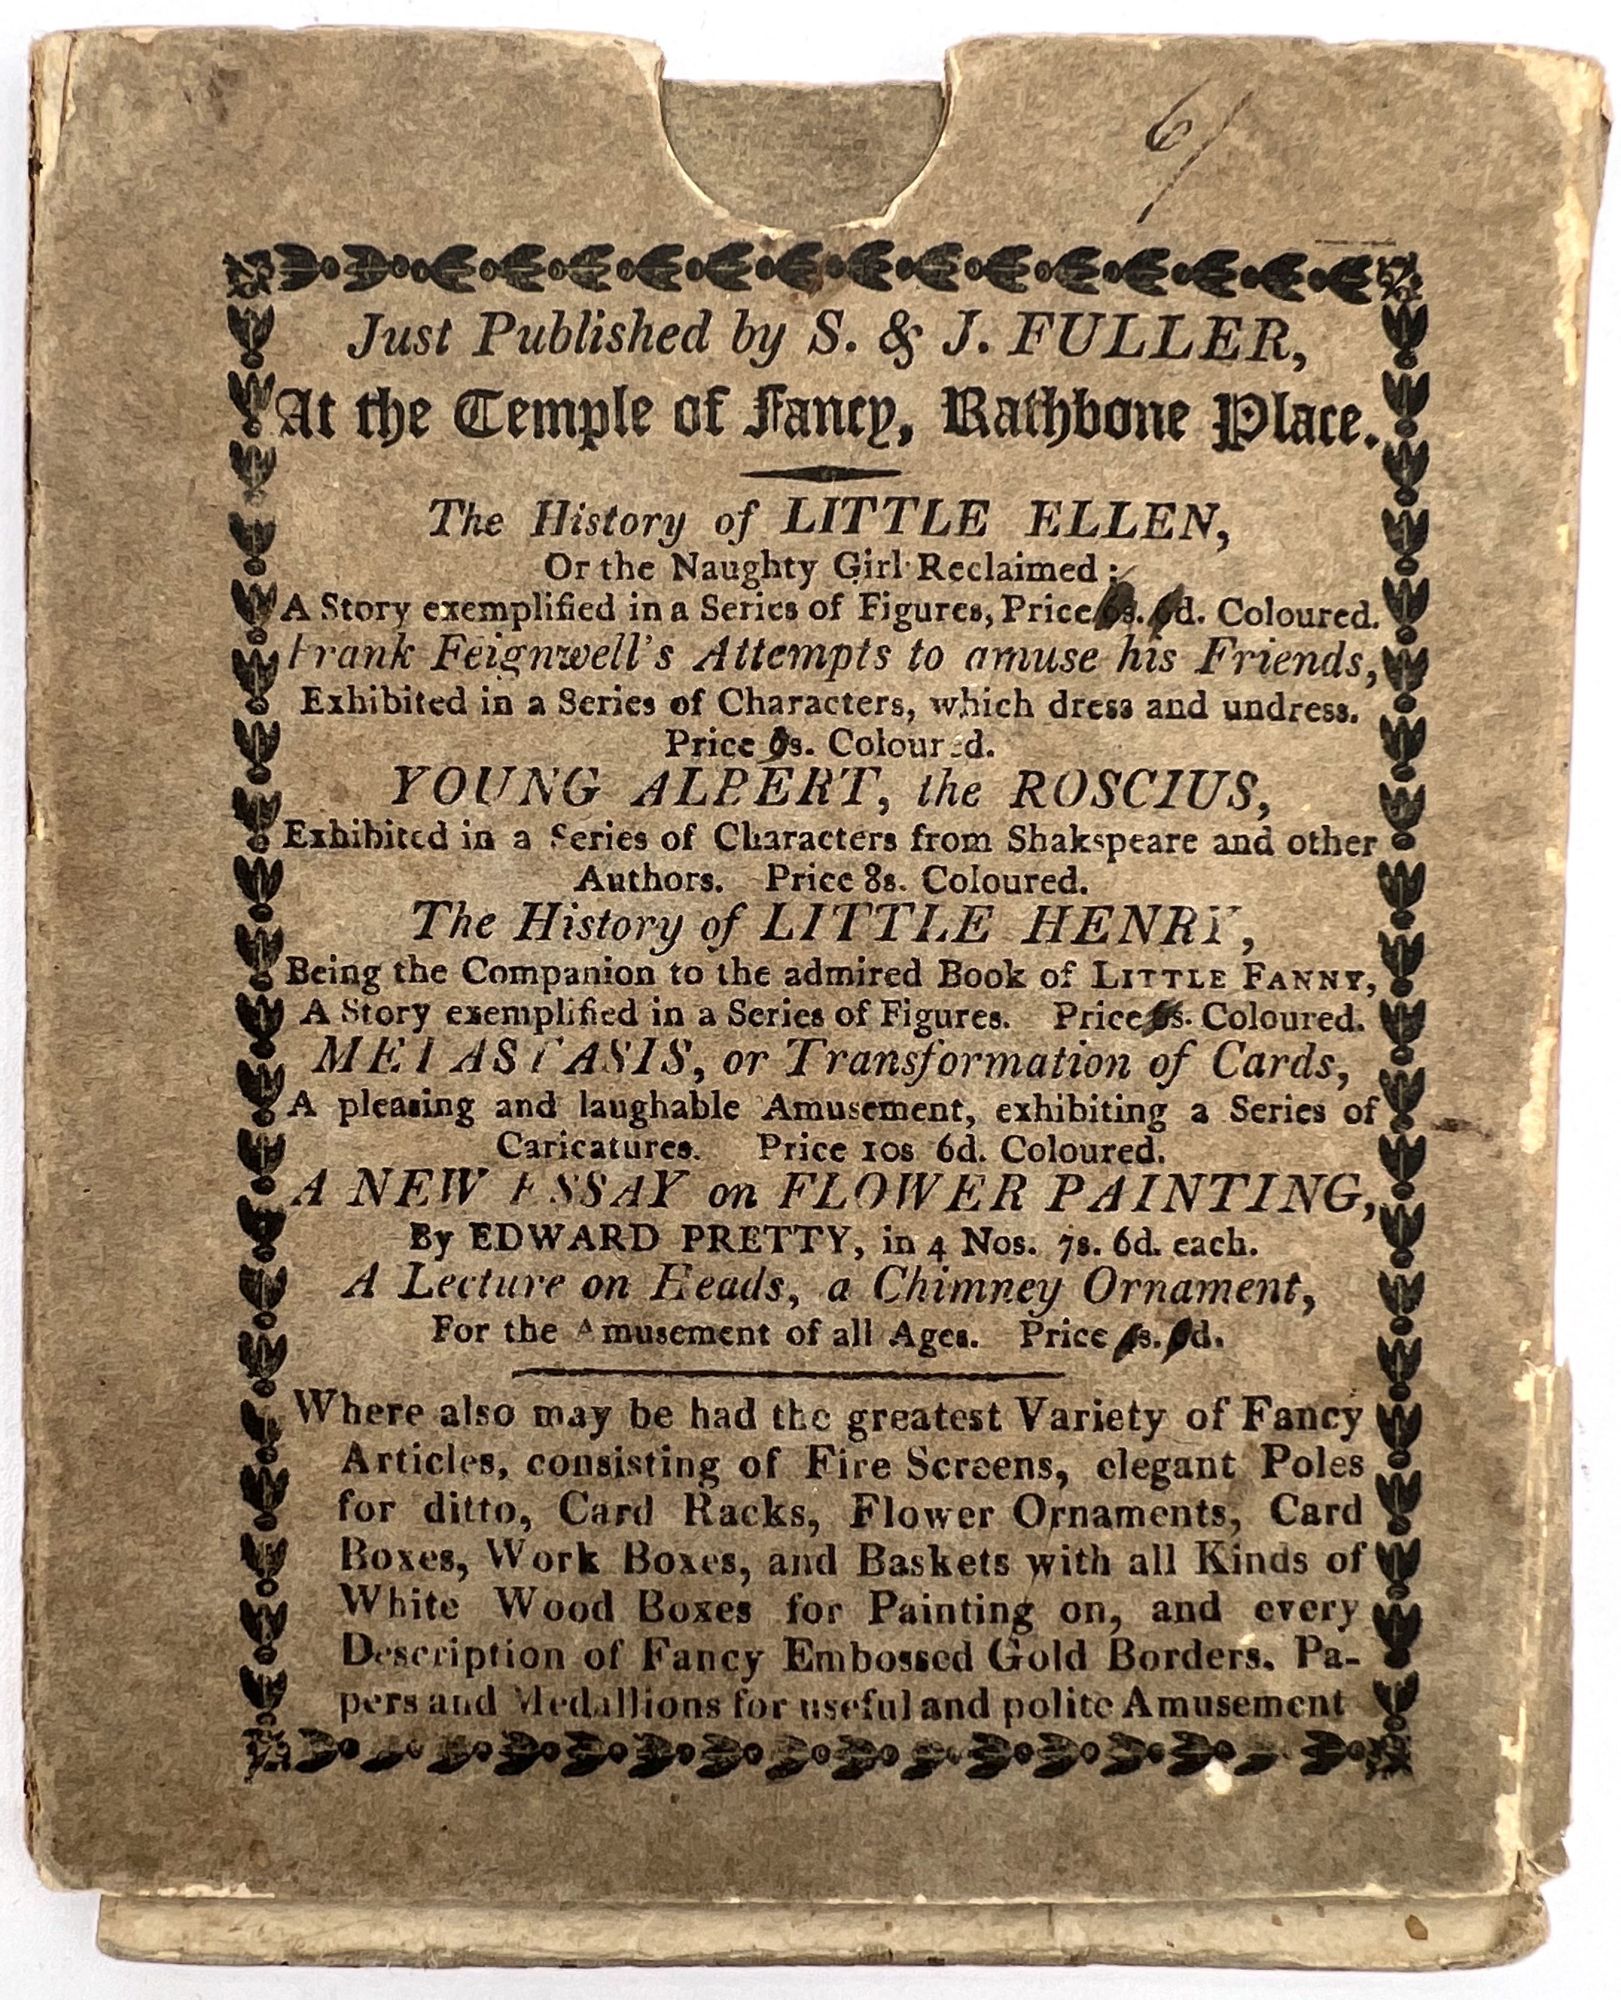 6/
Just Published by S. & J. FULLER,
At the Temple of Fancy, Rathbone Place.
The History of LITTLE ELLEN,
Or the Naughty Girl Reclaimed;
A Story exemplified in a Series of Figures, Price s. d. Coloured.
Frank Feignwell's Attempts to amuse his Friends,
Exhibited in a Series of Characters, which dress and undress.
Price s. Coloured.
YOUNG ALBERT, the ROSCIUS,
Exhibited in a Series of Characters from Shakspeare and other
Authors. Price 8s. Coloured.
The History of LITTLE HENRY,
Being the Companion to the admired Book of LITTLE FANNY,
A Story exemplified in a Series of Figures. Price s. Coloured.
METASTASIS, or Transformation of Cards,
A pleasing and laughable Amusement, exhibiting a Series of
Caricatures. Price 10s 6d. Coloured.
A NEW ESSAY on FLOWER PAINTING,
By EDWARD PRETTY, in 4 Nos. 7s. 6d. each.
A Lecture on Heads, a Chimney Ornament,
For the Amusement of all Ages. Price s. d.
Where also may be had the greatest Variety of Fancy
Articles, consisting of Fire Screens, elegant Poles
for ditto, Card Racks, Flower Ornaments, Card
Boxes, Work Boxes, and Baskets with all Kinds of
White Wood Boxes for Painting on, and every
Description of Fancy Embossed Gold Borders. Pa-
pers and Medallions for useful and polite Amusement